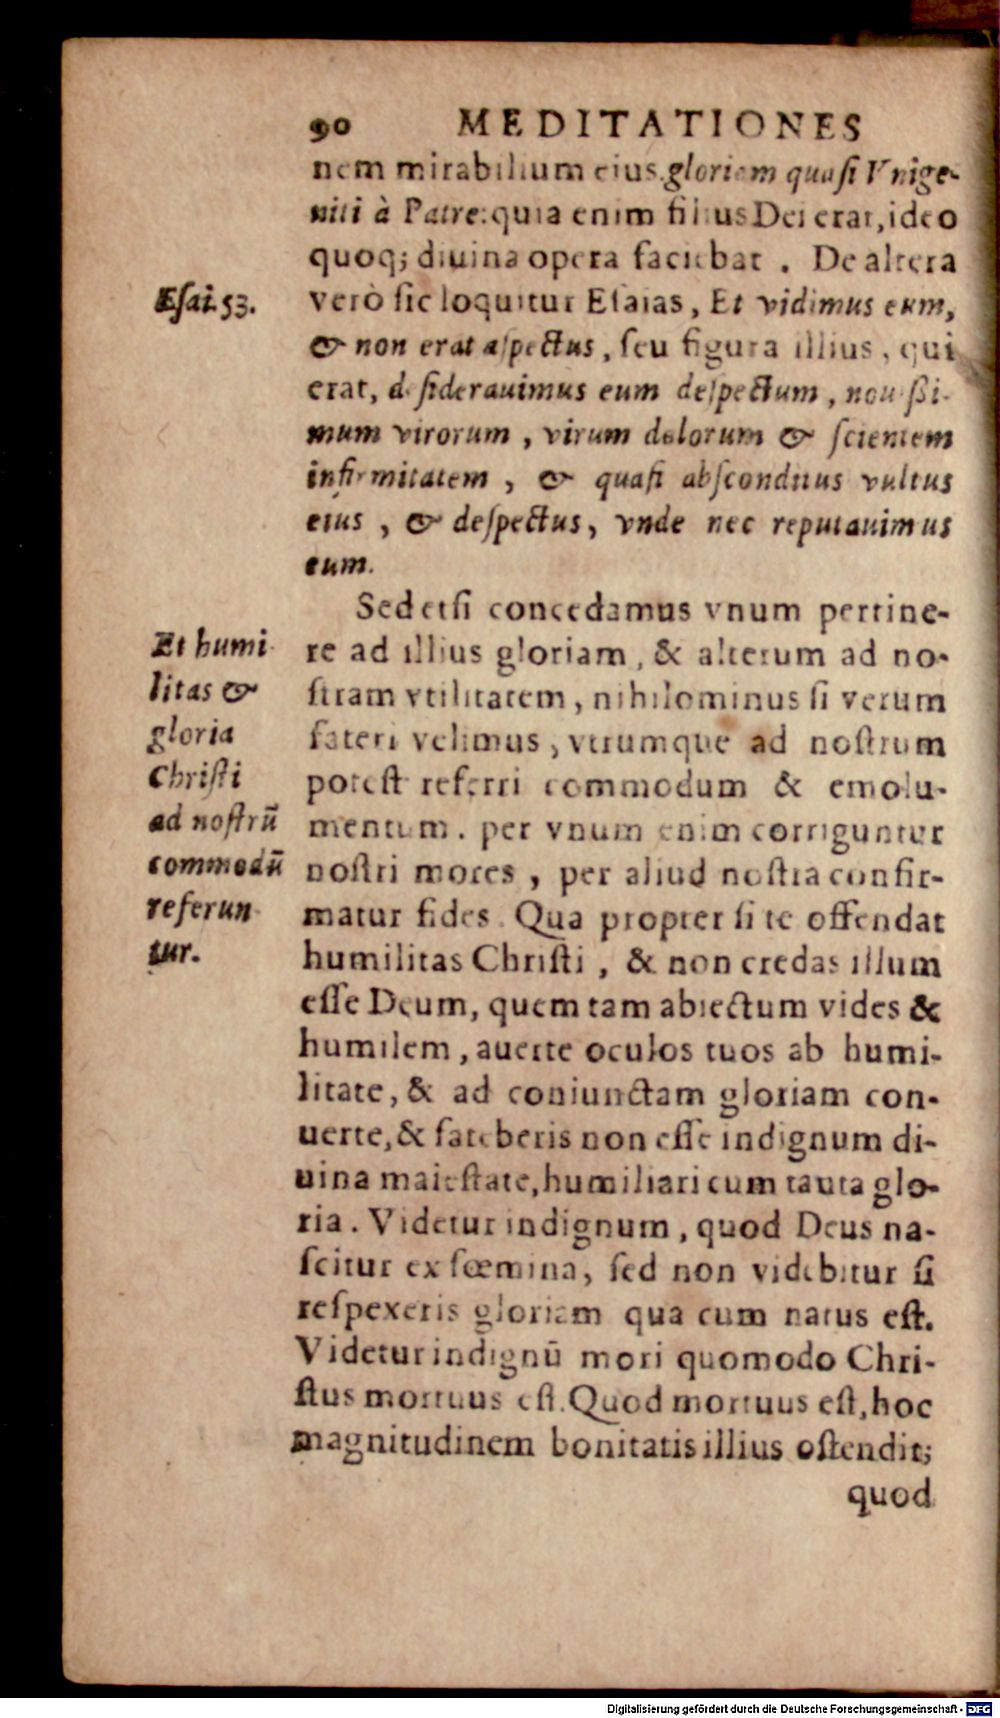 90 MEDITATIONES
nem mirabilium eius. gloriam quaſi Vnige-
niti à Patre: quia enim filius Dei erat, ideo
quoq; diuina opera faciebat . De altera
verò ſic loquitur Eſaias, Et vidimus eum,
& non erat aſpectus, ſeu figura illius, qui
erat, deſiderauimus eum deſpectum, nouißi-
mum virorum, virum dolorum & ſcientem
infirmitatem, & quaſi abſconditus vultus
eius, & deſpectus, vnde nec reputauimus
eum.
Eſai.53.
Sed etſi concedamus vnum pertine-
re ad illius gloriam, & alterum ad no-
ſtram vtilitatem, nihilominus ſi verum
fateri velimus, vtrumque ad noſtrum
poteſt referri commodum & emolu-
mentum. per vnum enim corriguntur
noſtri mores, per aliud noſtra confir-
matur fides. Qua propter ſi te offendat
humilitas Chriſti, & non credas illum
eſſe Deum, quem tam abiectum vides &
humilem, auerte oculos tuos ab humi-
litate, & ad coniunctam gloriam con-
uerte, & fateberis non eſſe indignum di-
uina maieſtate, humiliari cum tanta glo-
ria. Videtur indignum, quod Deus na-
ſcitur ex fœmina, ſed non videbitur ſi
reſpexeris gloriam qua cum natus eſt.
Videtur indignū mori quomodo Chri-
ſtus mortuus eſt. Quod mortuus eſt, hoc
magnitudinem bonitatis illius oſtendit;
quod
Et humi
litas &
gloria
Chriſti
ad noſtrū
commodū
referun
tur.
Digitalisierung gefördert durch die Deutsche Forschungsgemeinschaft - DFG